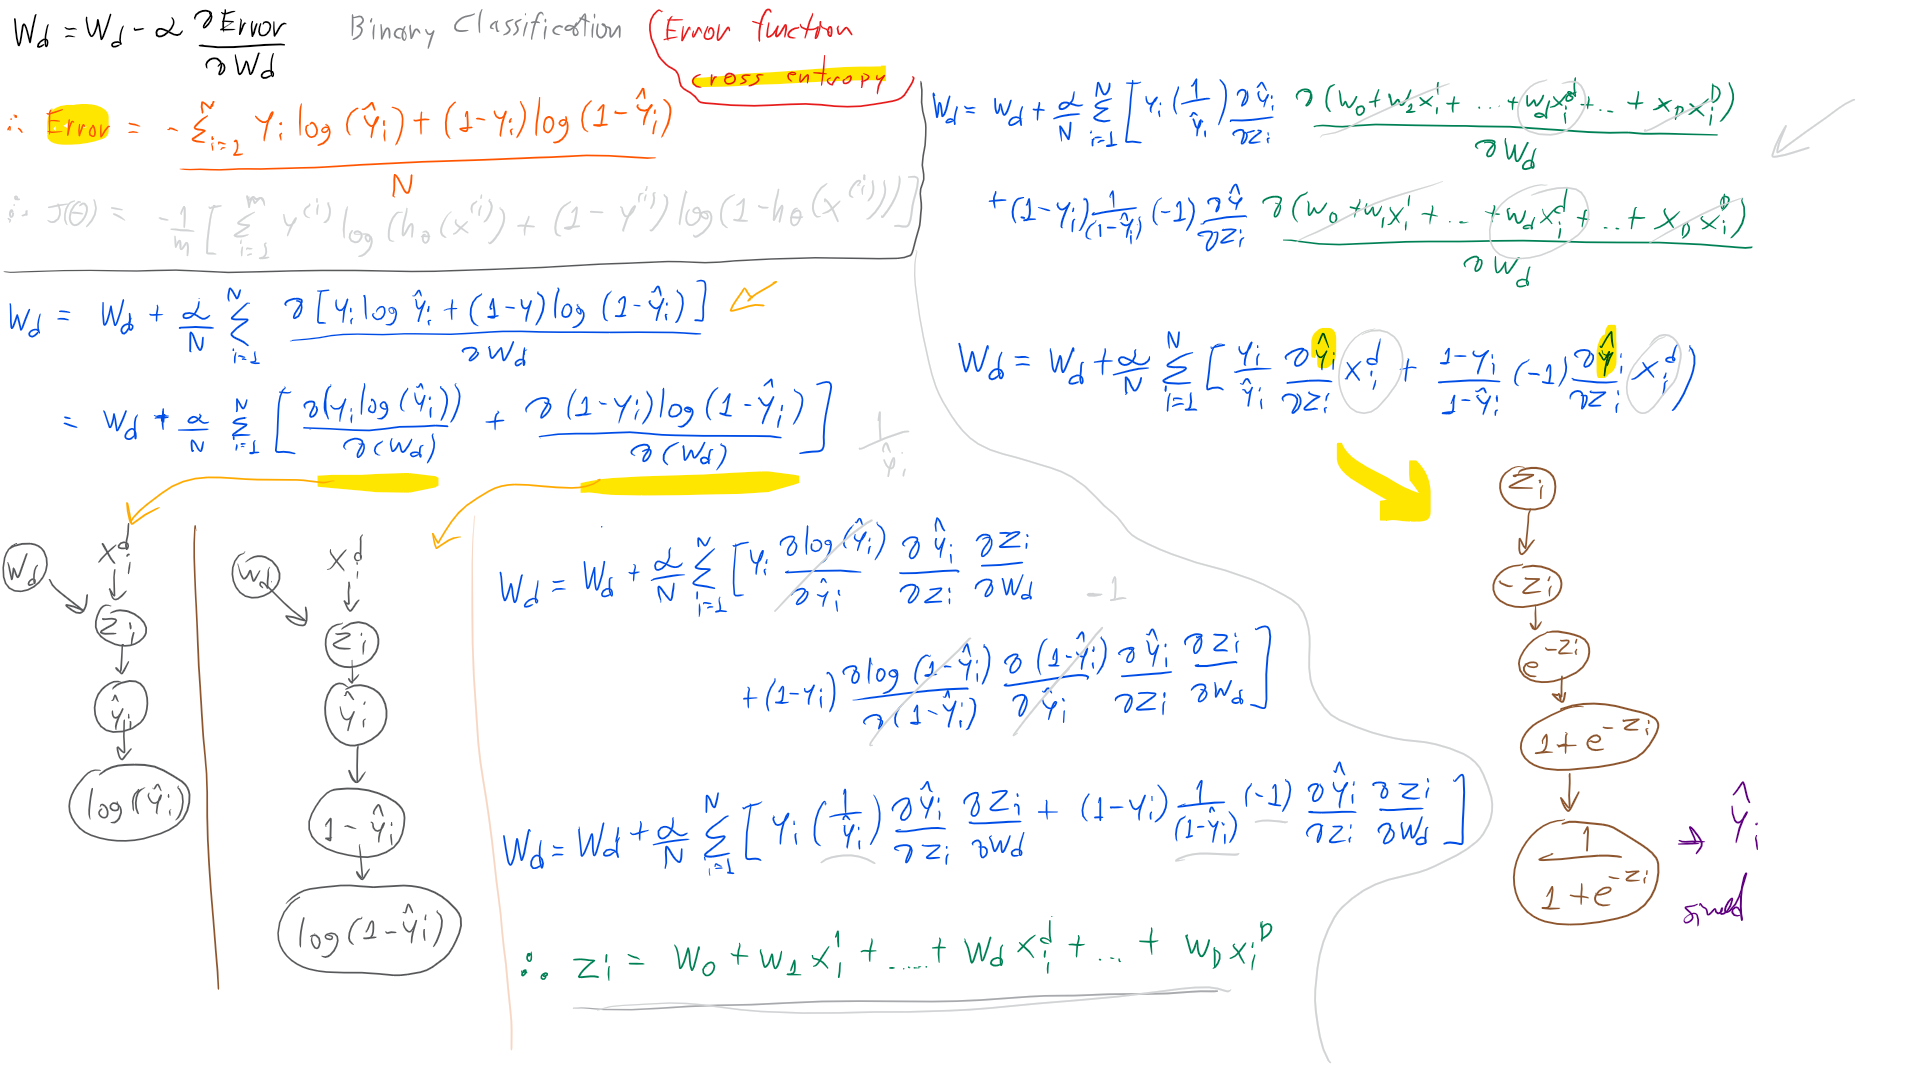 W_d = W_d - α ∂Error/∂W_d
Binary Classification
Error function
cross entropy
∴ Error = - Σ_{i=1}^{N} y_i log(ŷ_i) + (1-y_i) log(1-ŷ_i) / N
∴ J(θ) = -1/m [ Σ_{i=1}^{m} y^{(i)} log(h_θ(x^{(i)})) + (1-y^{(i)}) log(1-h_θ(x^{(i)})) ]
W_d = W_d + α/N Σ_{i=1}^{N} ∂[y_i log ŷ_i + (1-y) log(1-ŷ_i)] / ∂W_d
= W_d + α/N Σ_{i=1}^{N} [ ∂(y_i log(ŷ_i)) / ∂(W_d) + ∂(1-y_i) log(1-ŷ_i) / ∂(W_d) ]
1/ŷ_i
W_d
x_i^d
z_i
ŷ_i
log(ŷ_i)
W_d
x_i^d
z_i
ŷ_i
1-ŷ_i
log(1-ŷ_i)
W_d = W_d + α/N Σ_{i=1}^{N} [ y_i ∂log(ŷ_i)/∂ŷ_i ∂ŷ_i/∂z_i ∂z_i/∂W_d
-1
+ (1-y_i) ∂log(1-ŷ_i)/∂(1-ŷ_i) ∂(1-ŷ_i)/∂ŷ_i ∂ŷ_i/∂z_i ∂z_i/∂W_d ]
W_d = W_d + α/N Σ_{i=1}^{N} [ y_i (1/ŷ_i) ∂ŷ_i/∂z_i ∂z_i/∂W_d + (1-y_i) 1/(1-ŷ_i) (-1) ∂ŷ_i/∂z_i ∂z_i/∂W_d ]
∴ z_i = W_0 + W_1 x_i^1 + ..... + W_d x_i^d + ... + W_D x_i^D
W_d = W_d + α/N Σ_{i=1}^{N} [ y_i (1/ŷ_i) ∂ŷ_i/∂z_i ∂(W_0 + W_1 x_i^1 + ... + W_d x_i^d + ... + x_D x_i^D) / ∂W_d
+ (1-y_i) 1/(1-ŷ_i) (-1) ∂ŷ/∂z_i ∂(W_0 + W_1 x_i^1 + ... + W_d x_i^d + ... + x_D x_i^D) / ∂W_d
W_d = W_d + α/N Σ_{i=1}^{N} [ y_i/ŷ_i ∂ŷ_i/∂z_i x_i^d + 1-y_i/1-ŷ_i (-1) ∂ŷ_i/∂z_i x_i^d )
z_i
-z_i
e^{-z_i}
1+e^{-z_i}
1/1+e^{-z_i}
→ ŷ_i